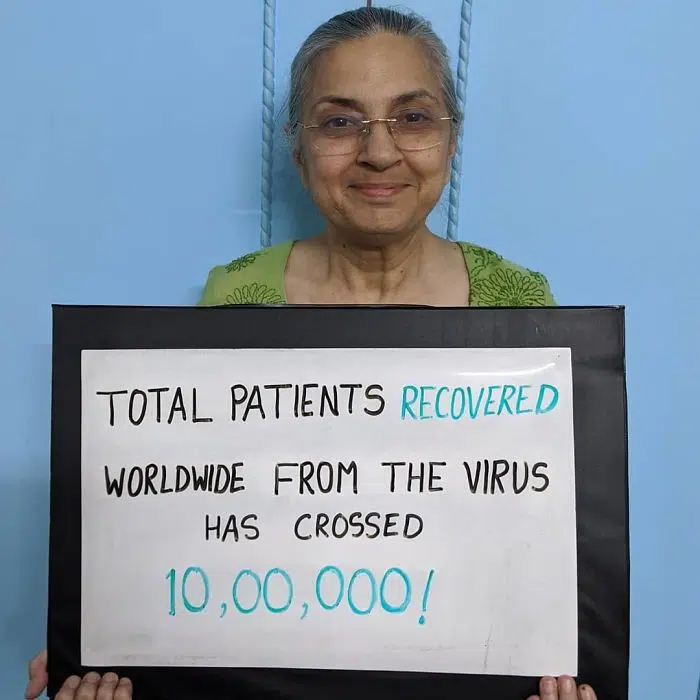 TOTAL PATIENTS RECOVERED
WORLDWIDE FROM THE VIRUS
HAS CROSSED
10,00,000!